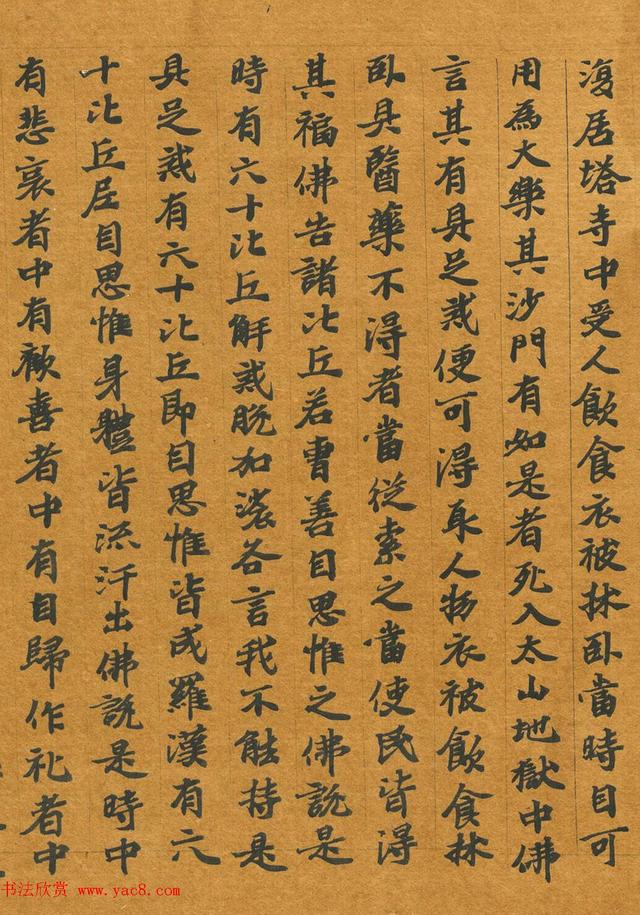 復居塔寺中受人飲食衣被牀卧當時自可
用為大樂其沙門有如是者死入太山地獄中佛
言其有具足戒便可得取人物衣被飲食牀
卧具醫藥不得者當從索之當使民皆得
其福佛告諸比丘若曹善自思惟之佛説是
時有六十比丘解戒脱加沙各言我不能持是
具足戒有六十比丘即自思惟皆成羅漢有六
十比丘居自思惟身體皆流汗出佛説是時中
有悲哀者中有歡喜者中有自歸作礼者中
书法欣赏 www.yac8.com